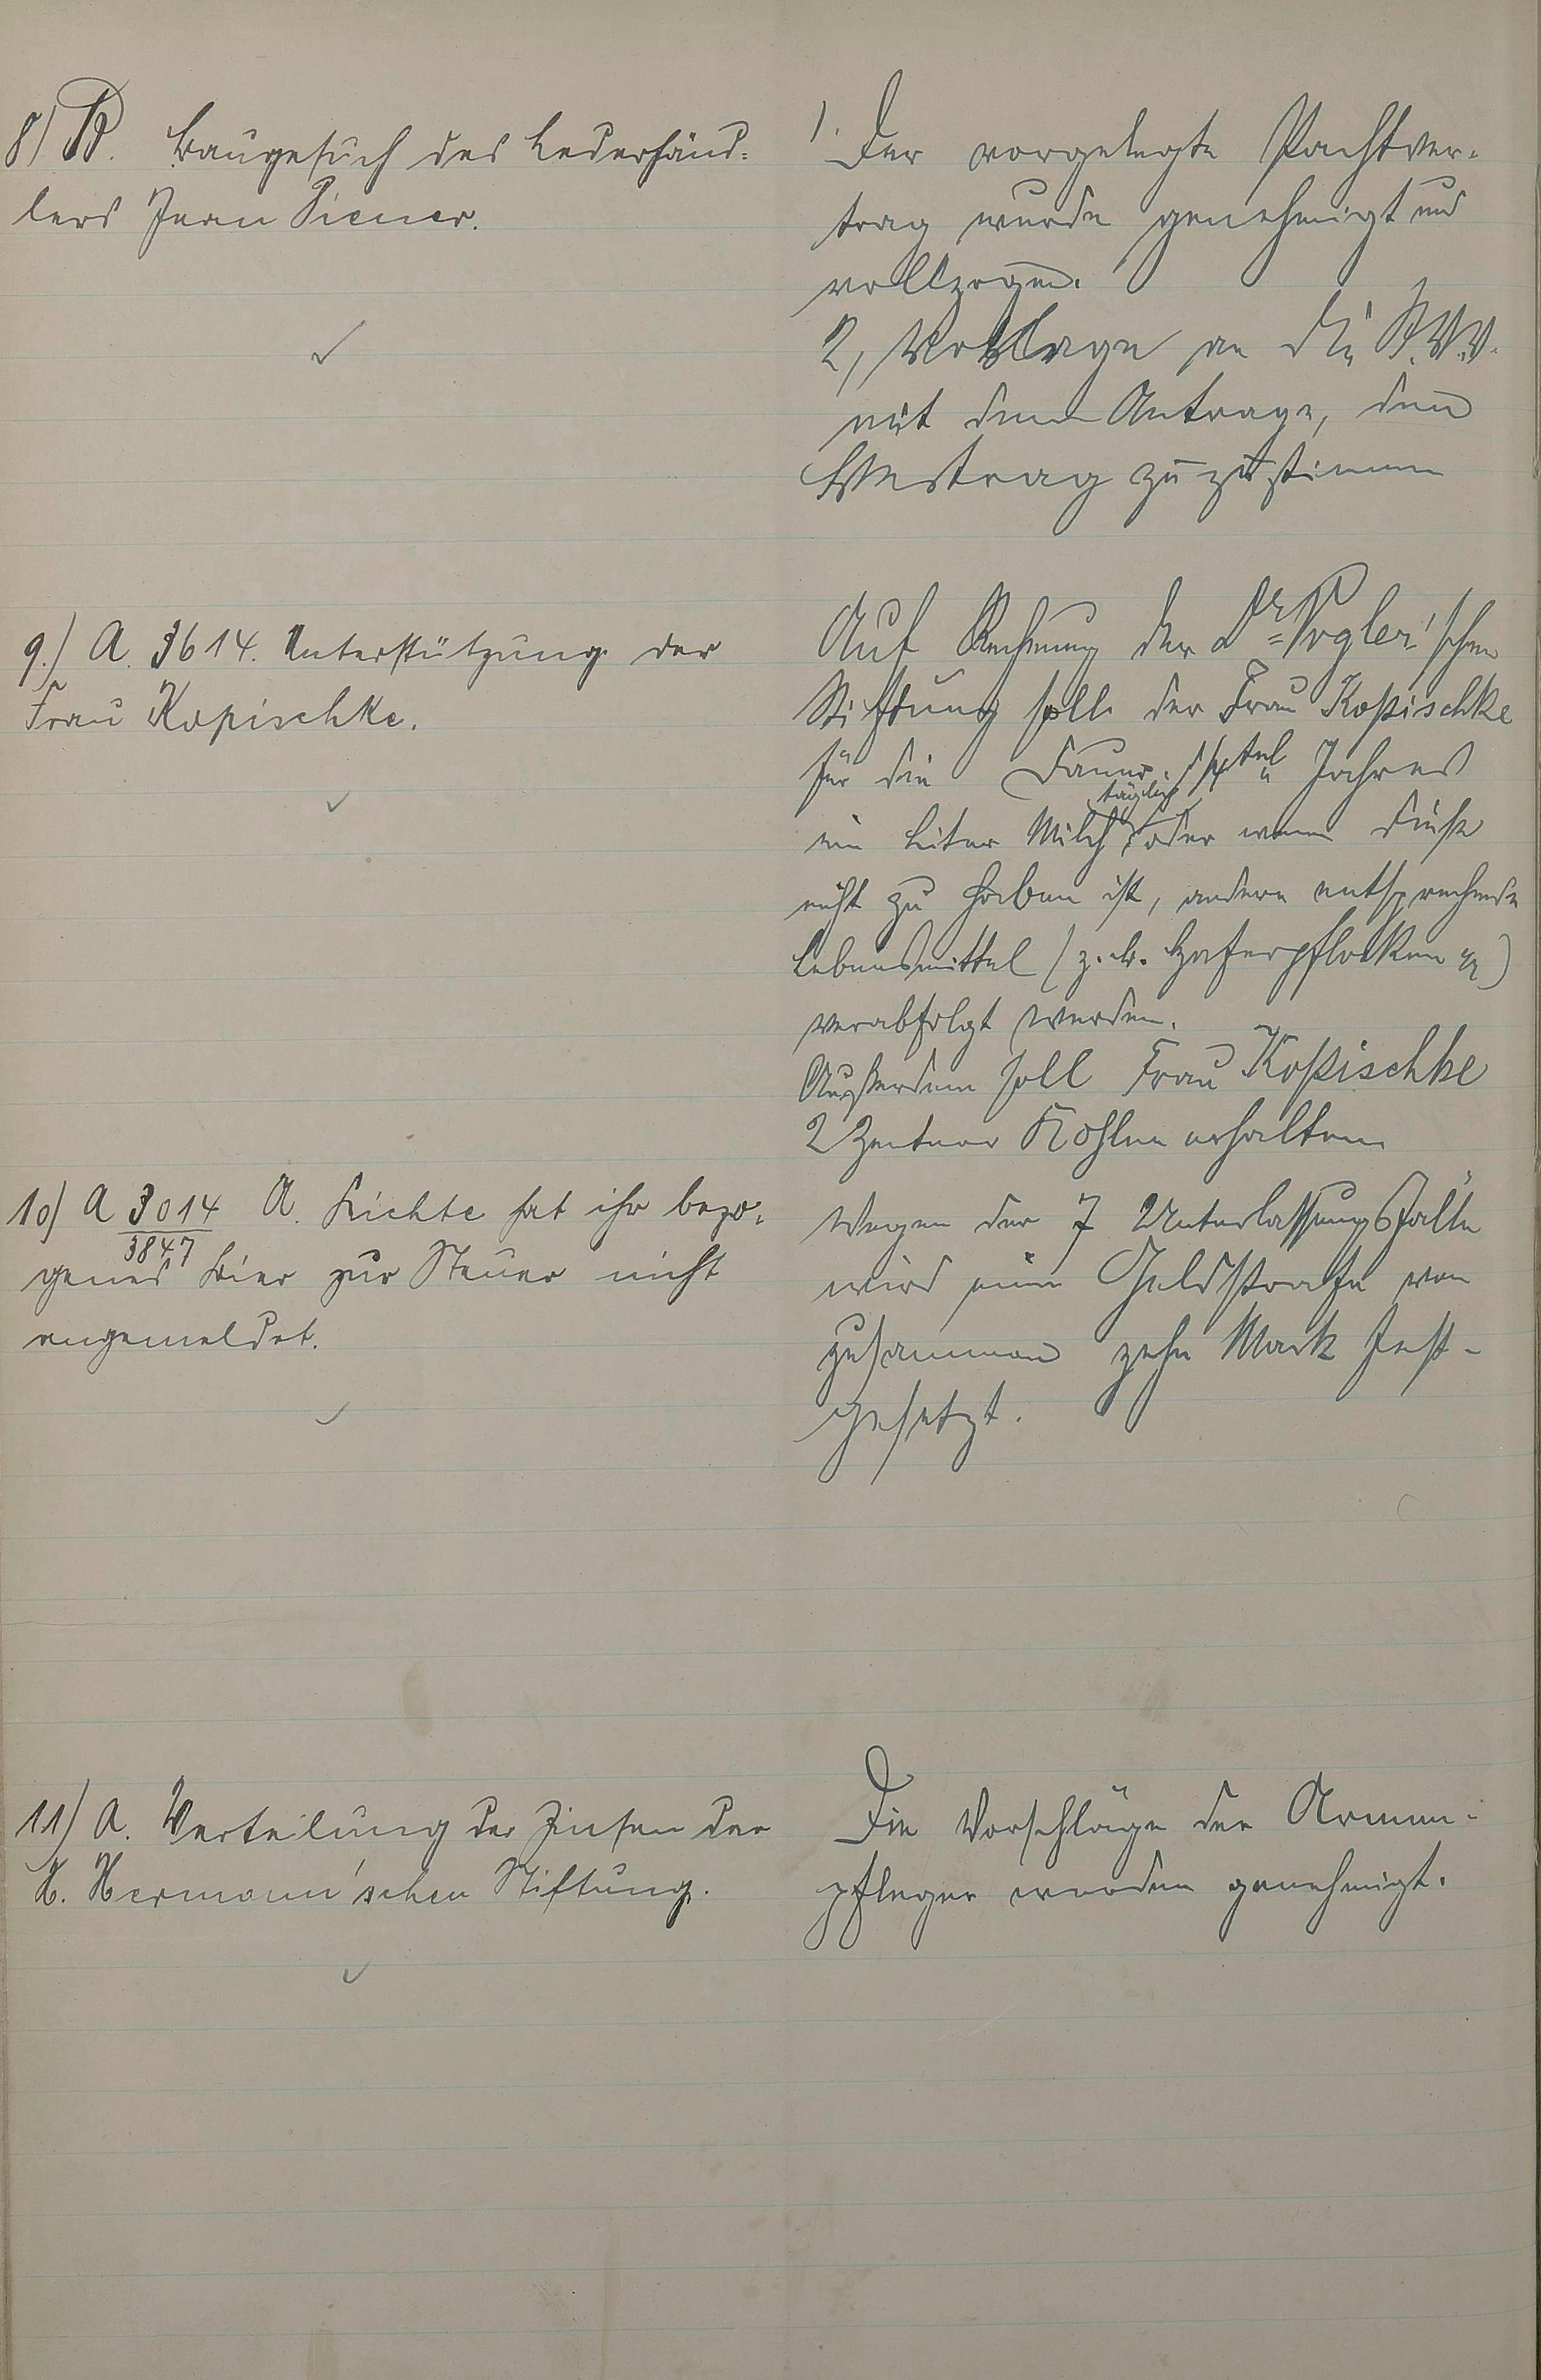 8) B. Baugesuch des Lederhänd-
lers Jean Piener.
1. Der vorgelegte Pachtver-
trag wurde genehmigt und
vollzogen.
2, Vorlage an die St.V.V.
mit dem Antrage, dem
Vertrag zuzustimmen
9.) A. 3614. Unterstützung der
Frau Kopischke.
Auf Rechnung der Dr. Vogler'schen
Stiftung soll der Frau Kopischke
für die Dauer 1/4tel Jahres
täglich
ein Liter Milch oder wenn diese
nicht zu haben ist, andere entsprechende
Lebensmittel (z. B. Haferpflocken )
verabfolgt werden.
Außerdem soll Frau Kopischke
2 Zentner Kohlen erhalten
10) A 3014 A. Lichte hat ihr bezo-
3847
genes Bier zur Steuer nicht
angemeldet.
Wegen der 7 Unterlassungsfälle
wird eine Geldstrafe von
zusammen zehn Mark fest-
gesetzt.
11) A. Verteilung der Zinsen der
H. Hermann'schen Stiftung.
Die Vorschläge der Armen-
pfleger wurden genehmigt.